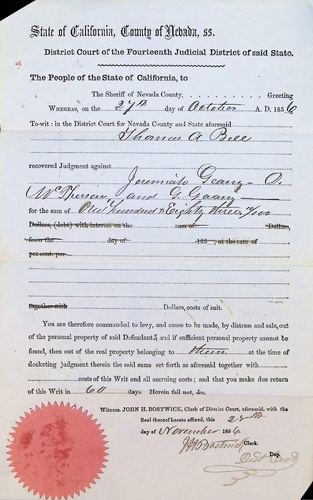 State of California, County of Nevada, ss.
District Court of the Fourteenth Judicial District of said State.
The People of the State of California, to
The Sheriff of Nevada County. Greeting
WHEREAS, on the 27th day of October A. D. 1856
To-wit: in the District Court for Nevada County and State aforesaid
Thomas A. Bell
recovered Judgment against
Geary
and
for the sum of One hundred & Eighty three
Dollars, (debt) with interest on the sum of Dollars,
from the day of 185 , at the rate of
per cent. per
together with Dollars, costs of suit.
You are therefore commanded to levy, and cause to be made, by distress and sale, out
of the personal property of said Defendants, and if sufficient personal property cannot be
found, then out of the real property belonging to them at the time of
docketing judgment therein the said sums set forth as aforesaid together with
costs of this Writ and all accruing costs; and that you make due return
of this Writ in 60 days. Herein fail not, &c.
Witness, JOHN H. BOSTWICK, Clerk of District Court, aforesaid, with the
Seal thereof hereto affixed, this 28th
day of November 1856
J H Bostwick Clerk.
Dep.